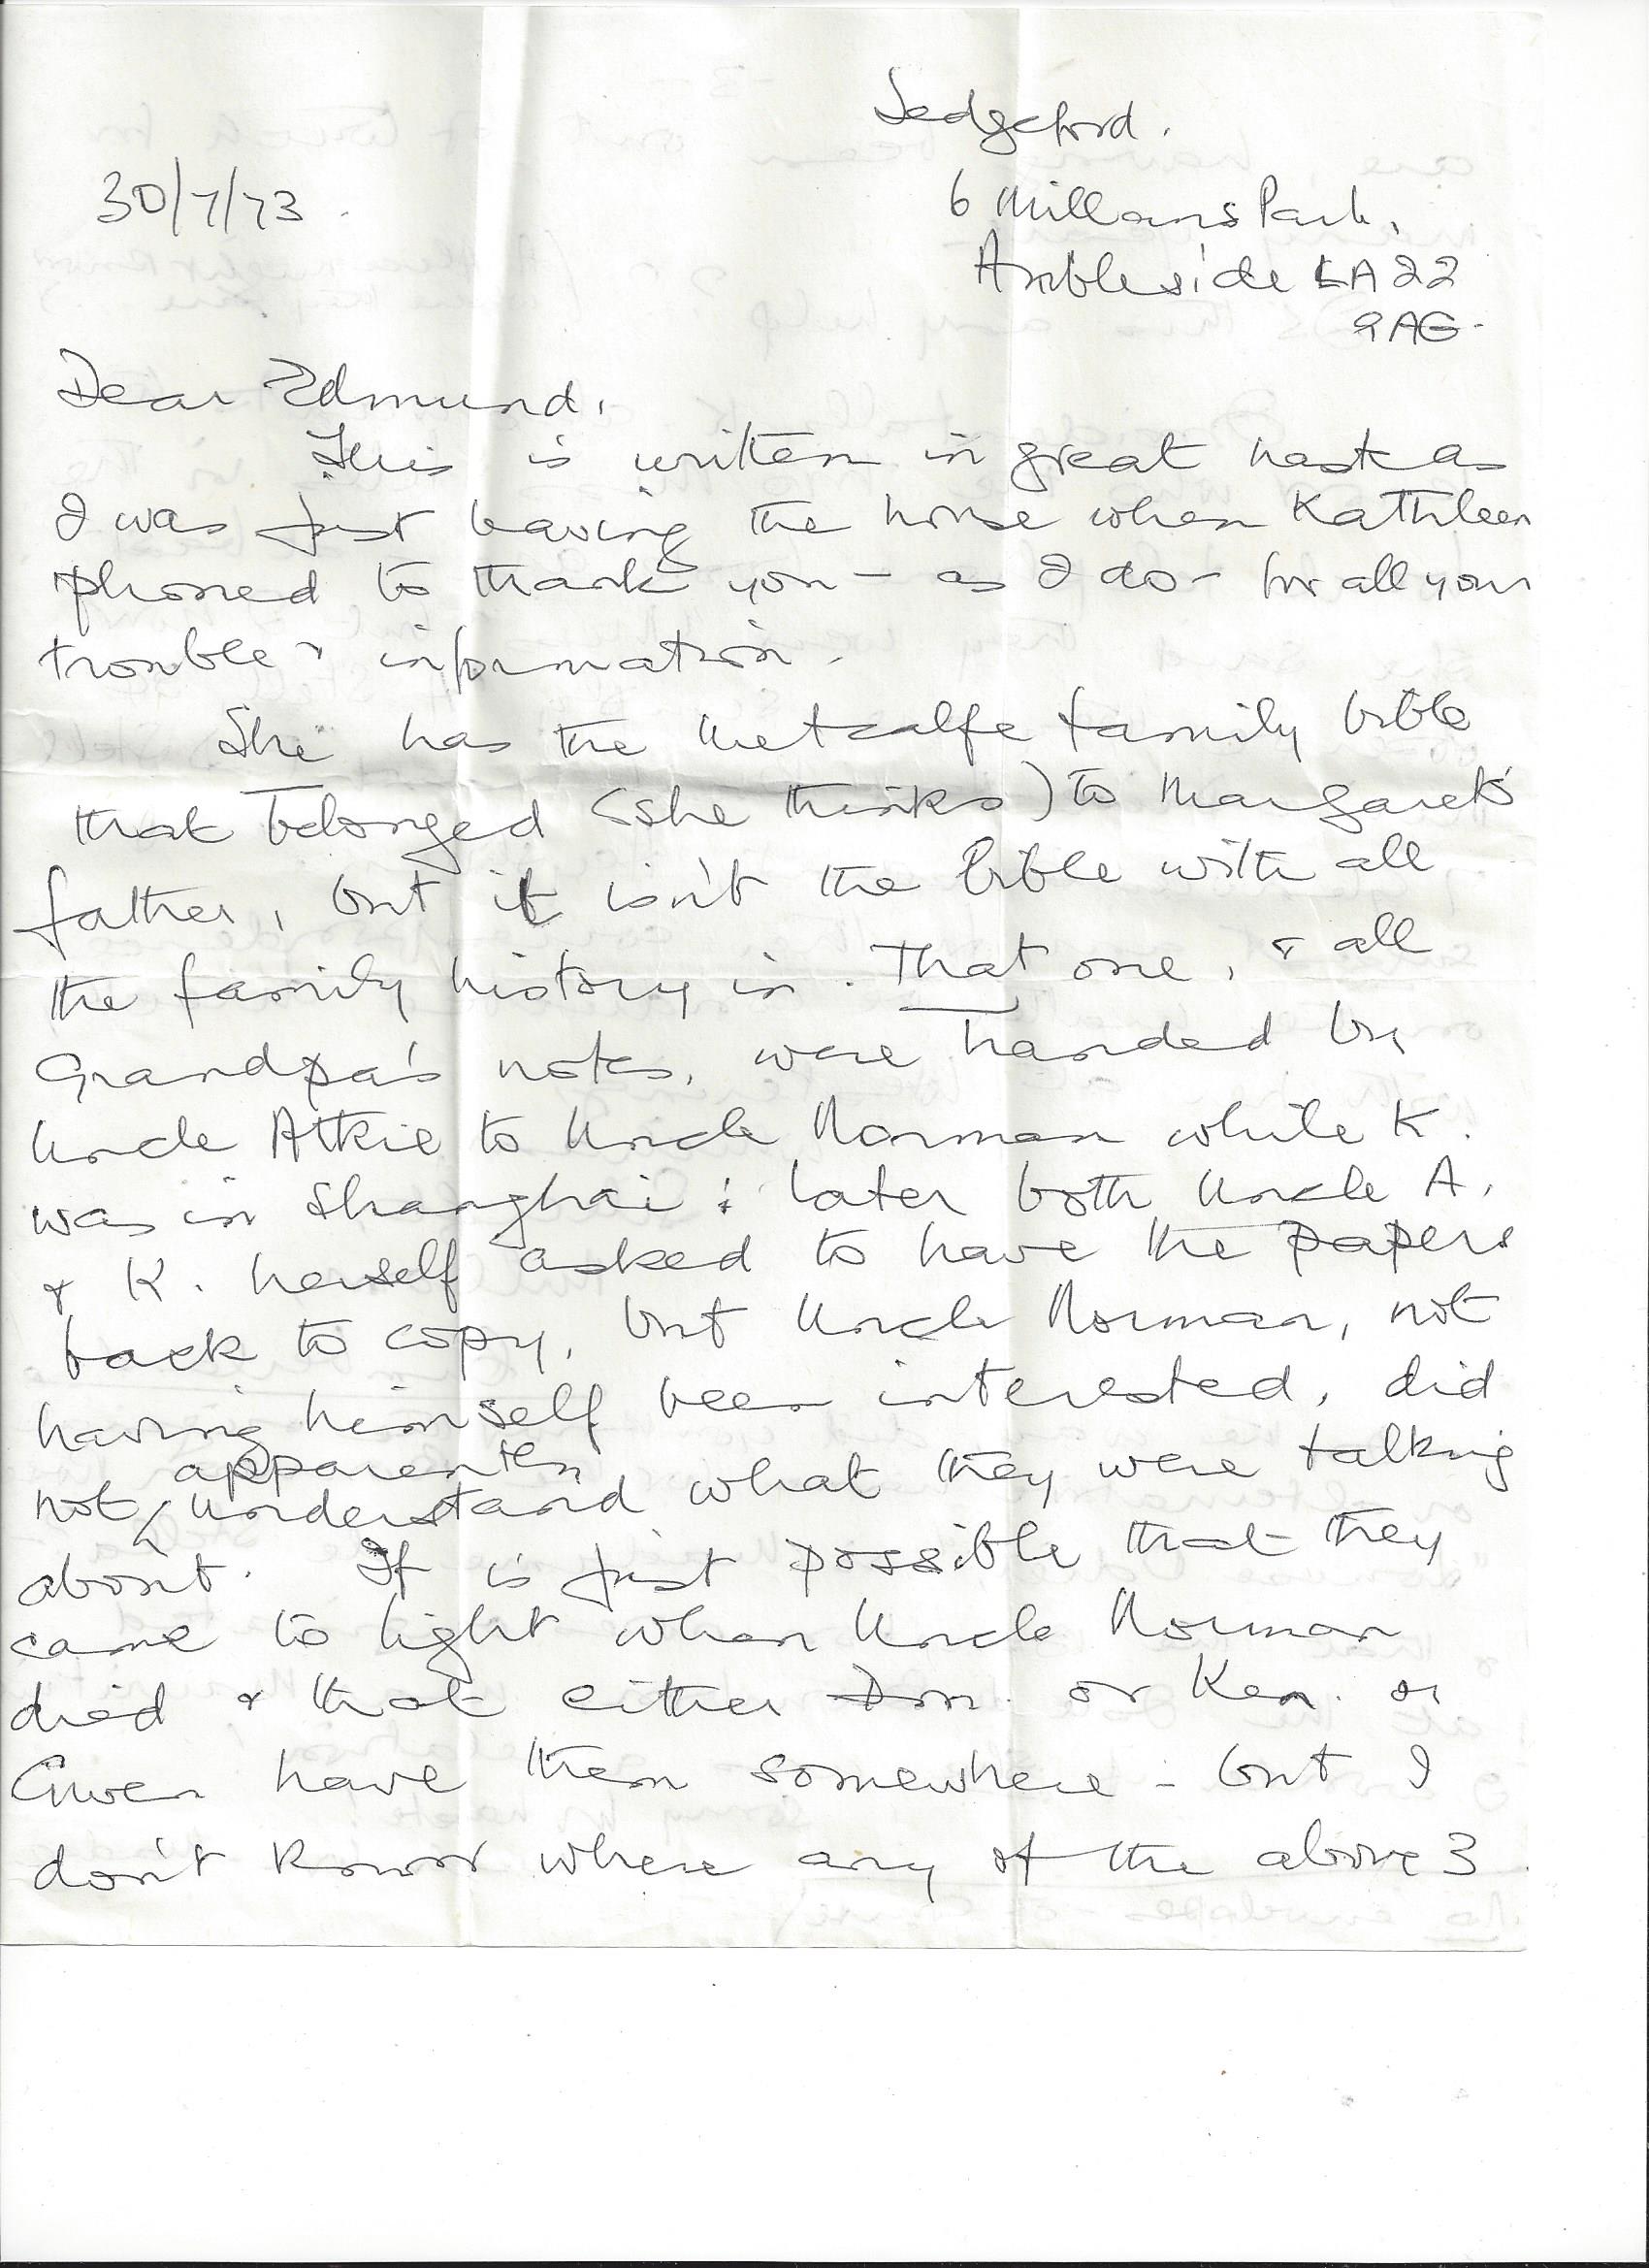 Sedgeford.
30/7/73.
6 Millans Park,
Ambleside LA22
9AG.
Dear Edmund,
This is written in great haste as
I was just leaving the house when Kathleen
'phoned to thank you – as I do – for all your
trouble & information.
She has the Metcalfe family bible
that belonged (she thinks) to Margaret's
father, but it isn't the bible with all
the family history in. That one, & all
Grandpa's notes, were handed by
Uncle Atkie to Uncle Norman while K.
was in Shanghai; later both Uncle A.
& K. herself asked to have the papers
back to copy, but Uncle Norman, not
having himself been interested, did
apparently
not understand what they were talking
about. It is just possible that they
came to light when Uncle Norman
died & that either Don. or Ken. or
Gwen have them somewhere – but I
don't know where any of the above 3